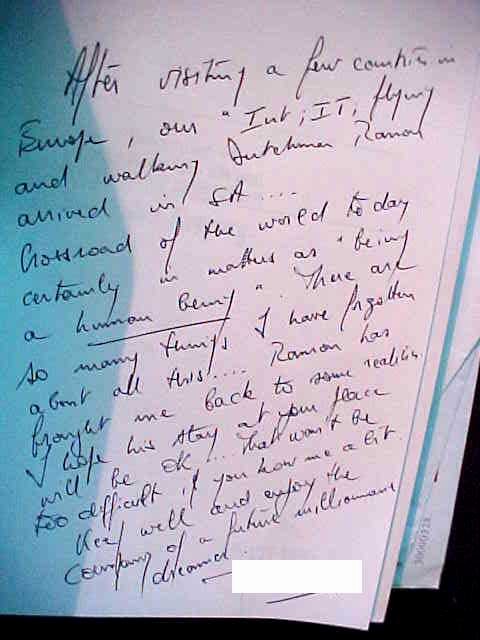 After visiting a few countries in
Europe, our "Int, IT, flying
and walking Dutchman Ramon
arrived in SA ....
Crossroad of the world to day
certainly in matters as "being
a human being". There are
so many things I have forgotten
about all this.... Ramon has
brought me back to some realities.
I hope his stay at your place
will be OK... That won't be
too difficult if you know me a bit.
Keep well and enjoy the
company of a future millionnaire
dreamed.
30000328